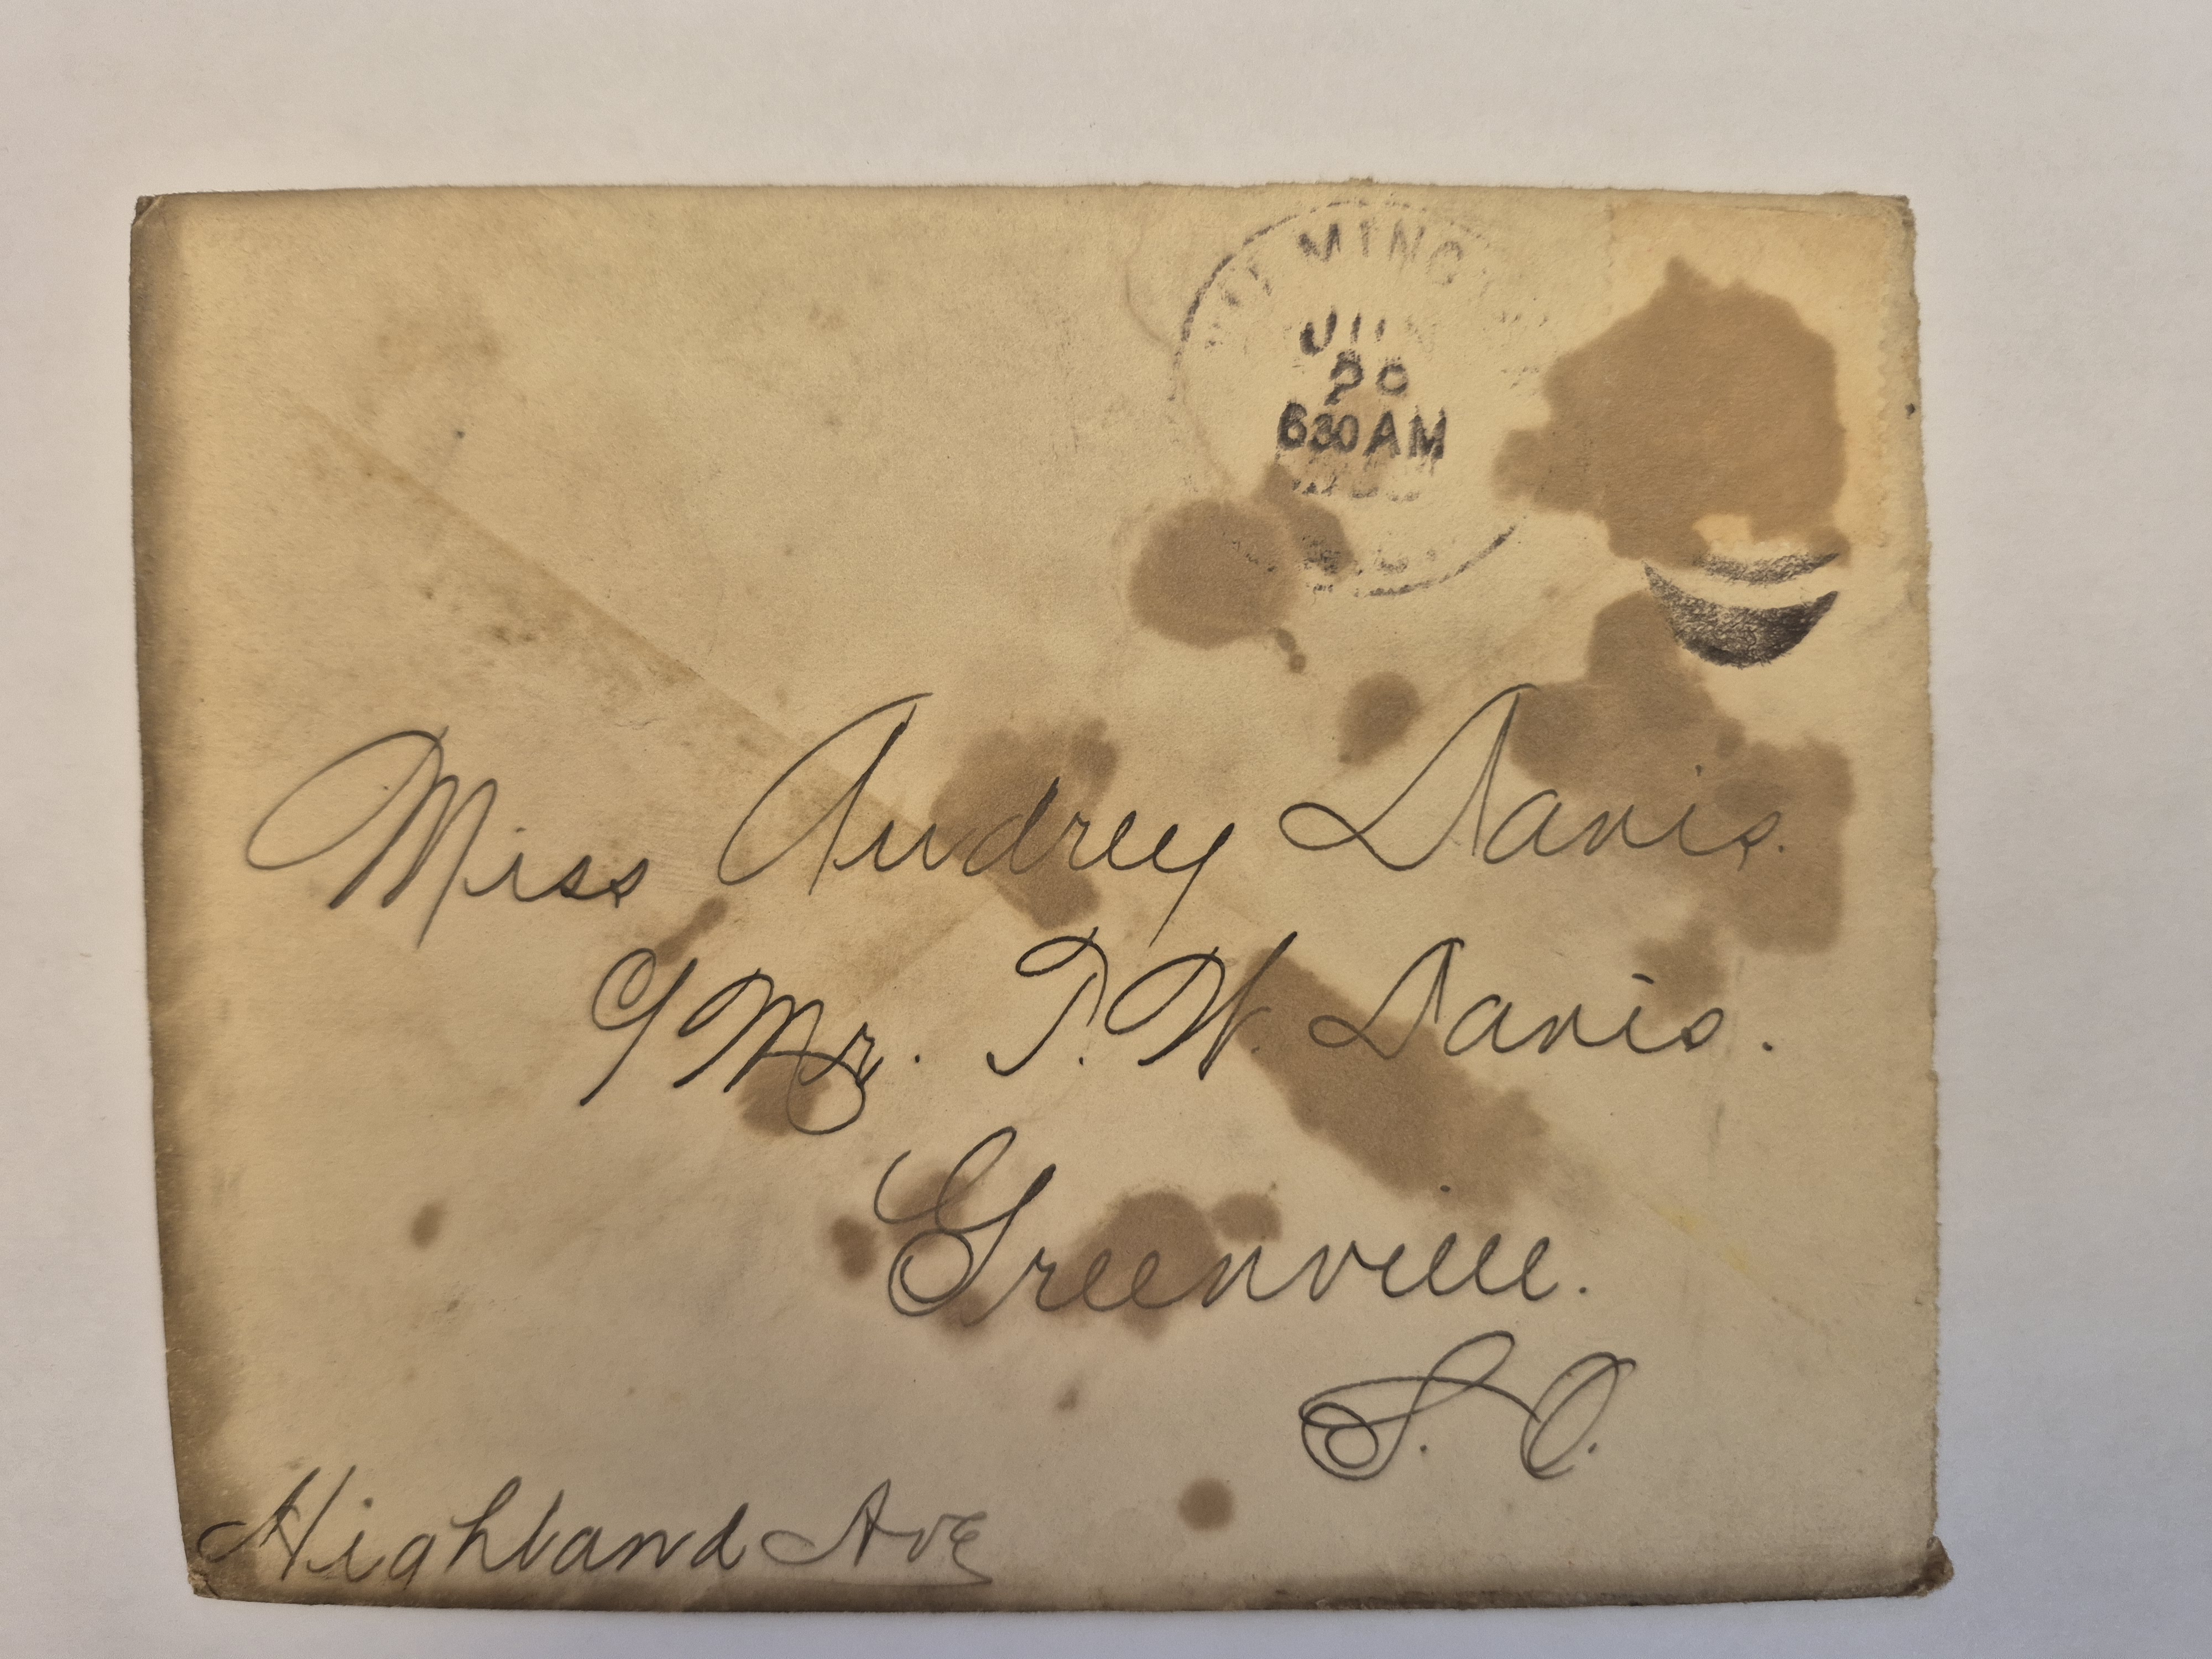 630AM
Miss Audrey Davis.
c/ Mr. T. W. Davis.
Greenville.
S. C.
Highland Ave